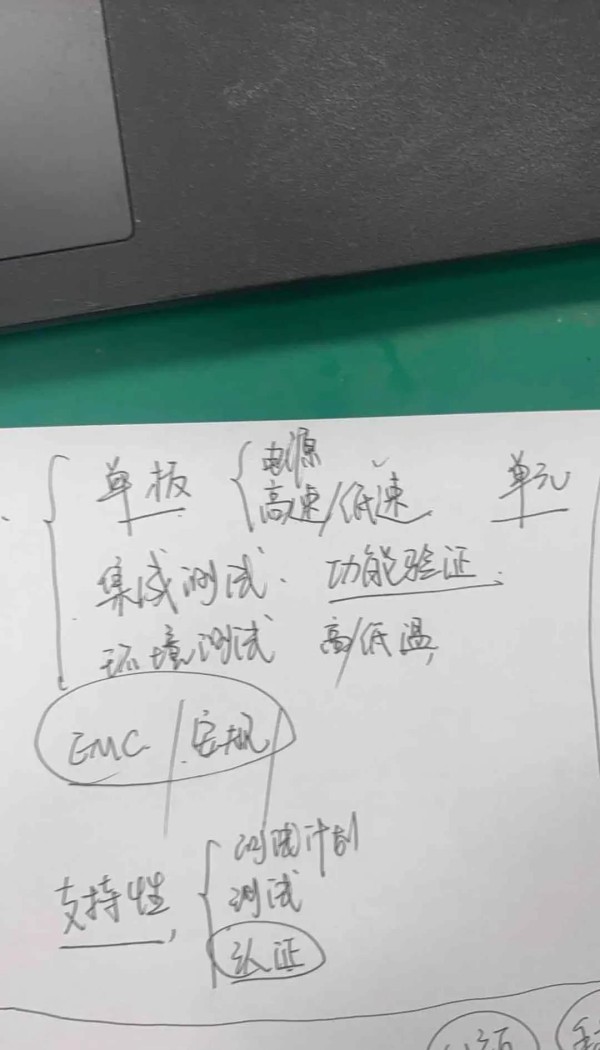 单板 { 电源 单元
高速/低速
集成测试. 功能验证.
环境测试 高/低温,
EMC / 安规
支持性, { 测试计划
测试
认证